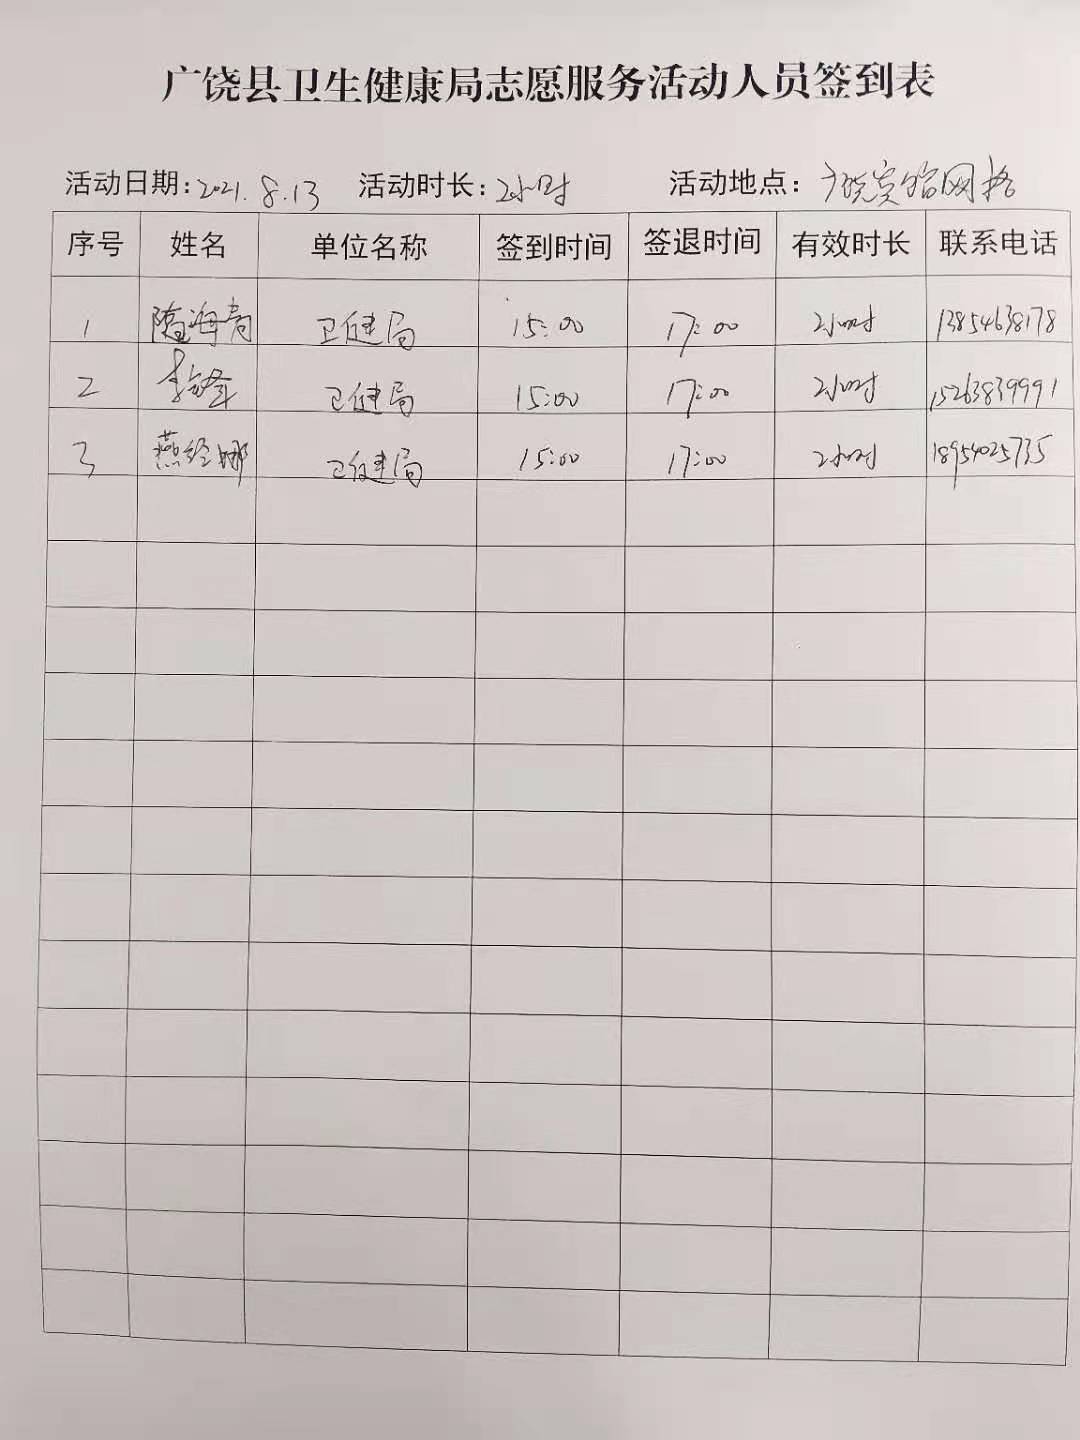 广饶县卫生健康局志愿服务活动人员签到表
活动日期: 2021.8.13 活动时长: 2小时 活动地点: 广饶宾馆网格
序号 姓名 单位名称 签到时间 签退时间 有效时长 联系电话
1 隋海青 卫健局 15:00 17:00 2小时 13854638178
2 卫健局 15:00 17:00 2小时 15263839991
3 燕经娜 卫健局 15:00 17:00 2小时 18954025735